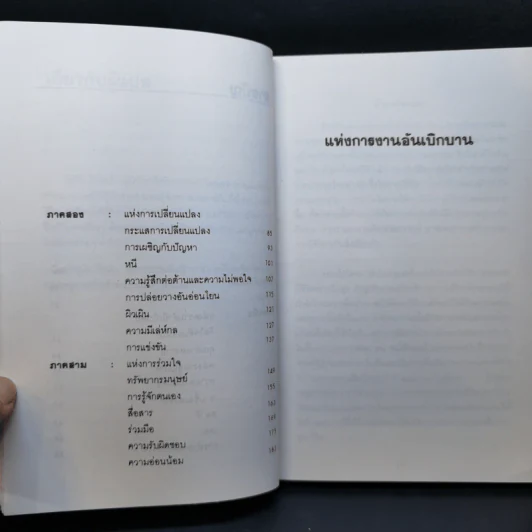 ภาคสอง : แห่งการเปลี่ยนแปลง
กระแสการเปลี่ยนแปลง
การเผชิญกับปัญหา
หนี 101
ความรู้สึกต่อต้านและความไม่พอใจ 107
การปล่อยวางอันอ่อนโยน 115
ผิวเผิน
ความมีเล่ห์กล
การแข่งขัน
ภาคสาม : แห่งการร่วมใจ
ทรัพยากรมนุษย์ 149
การรู้จักตนเอง
สื่อสาร
ร่วมมือ
ความรับผิดชอบ
ความอ่อนน้อม
แห่งการงานอันเบิกบาน